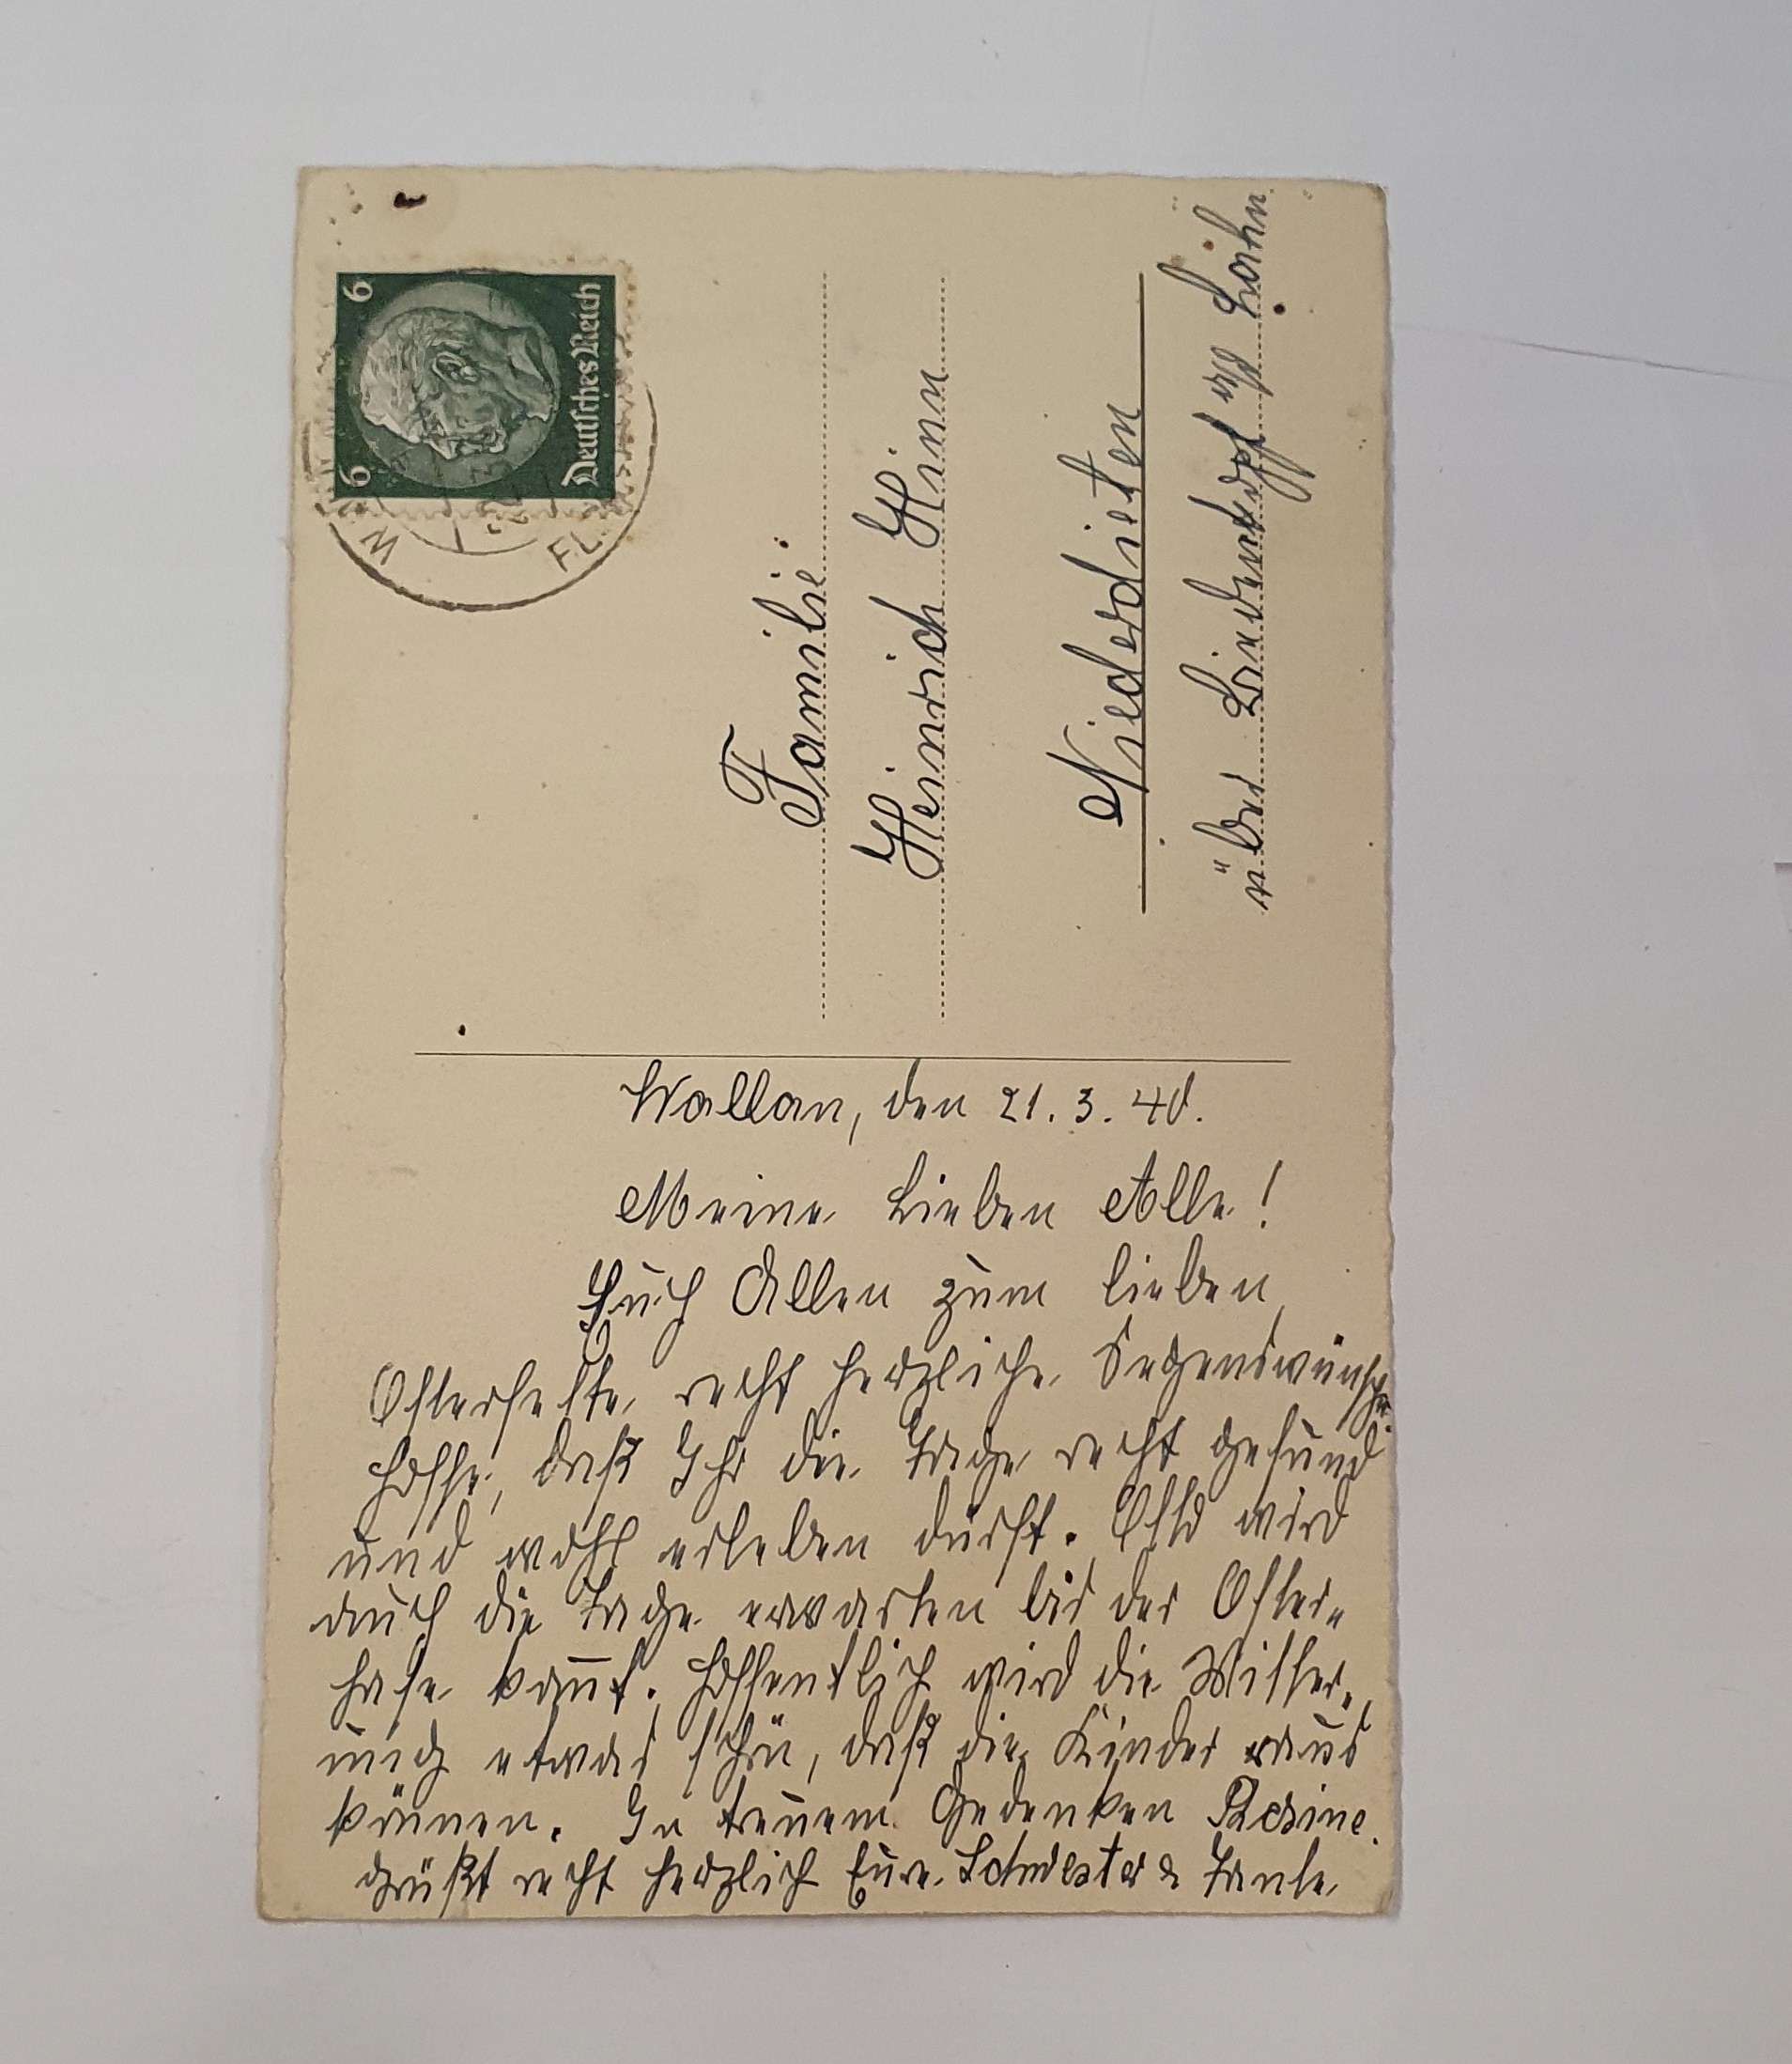 6 6
Deutsches Reich
W
FL.
Familie
Heinrich Hinn
Niederdieten
über Biedenkopf Lahn.
Wallau, den 21. 3. 40.
Meine Lieben Alle!
Euch Allen zum lieben
Osterfeste, recht herzliche Segenswünsche.
Hoffe, daß Ihr die Tage recht gesund
und wohl erleben dürft. wird
auch die Tage erwarten bis der Oster-
hase kommt. Hoffentlich wird die Witter-
ung etwas schön, daß die Kinder raus
können. In treuem Gedenken
grüßt recht herzlich Eure Schwester & Tante